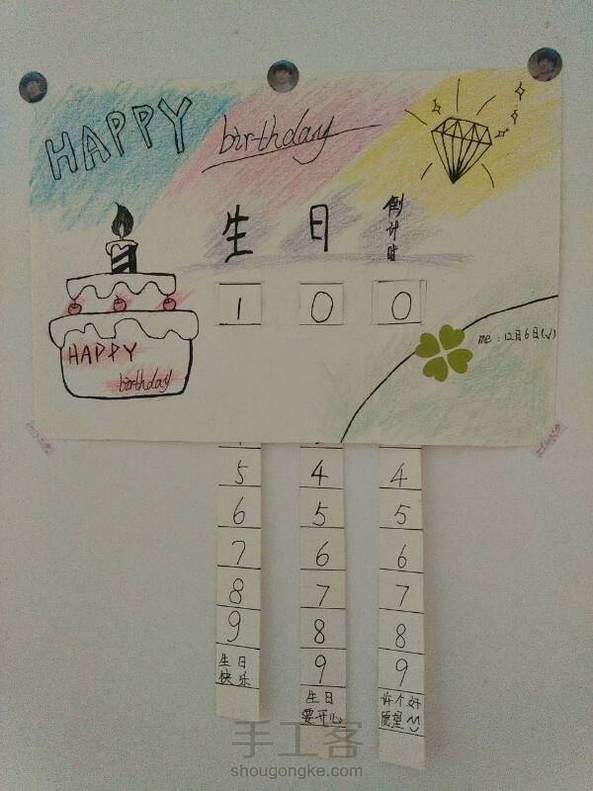 HAPPY birthday
生 日 倒计时
1 0 0
me：12月6日
HAPPY
birthday
5 4 4
6 5 5
7 6 6
8 7 7
9 8 8
生日 9 9
快乐
生日
要开心
许个好
愿望
手工客
shougongke.com